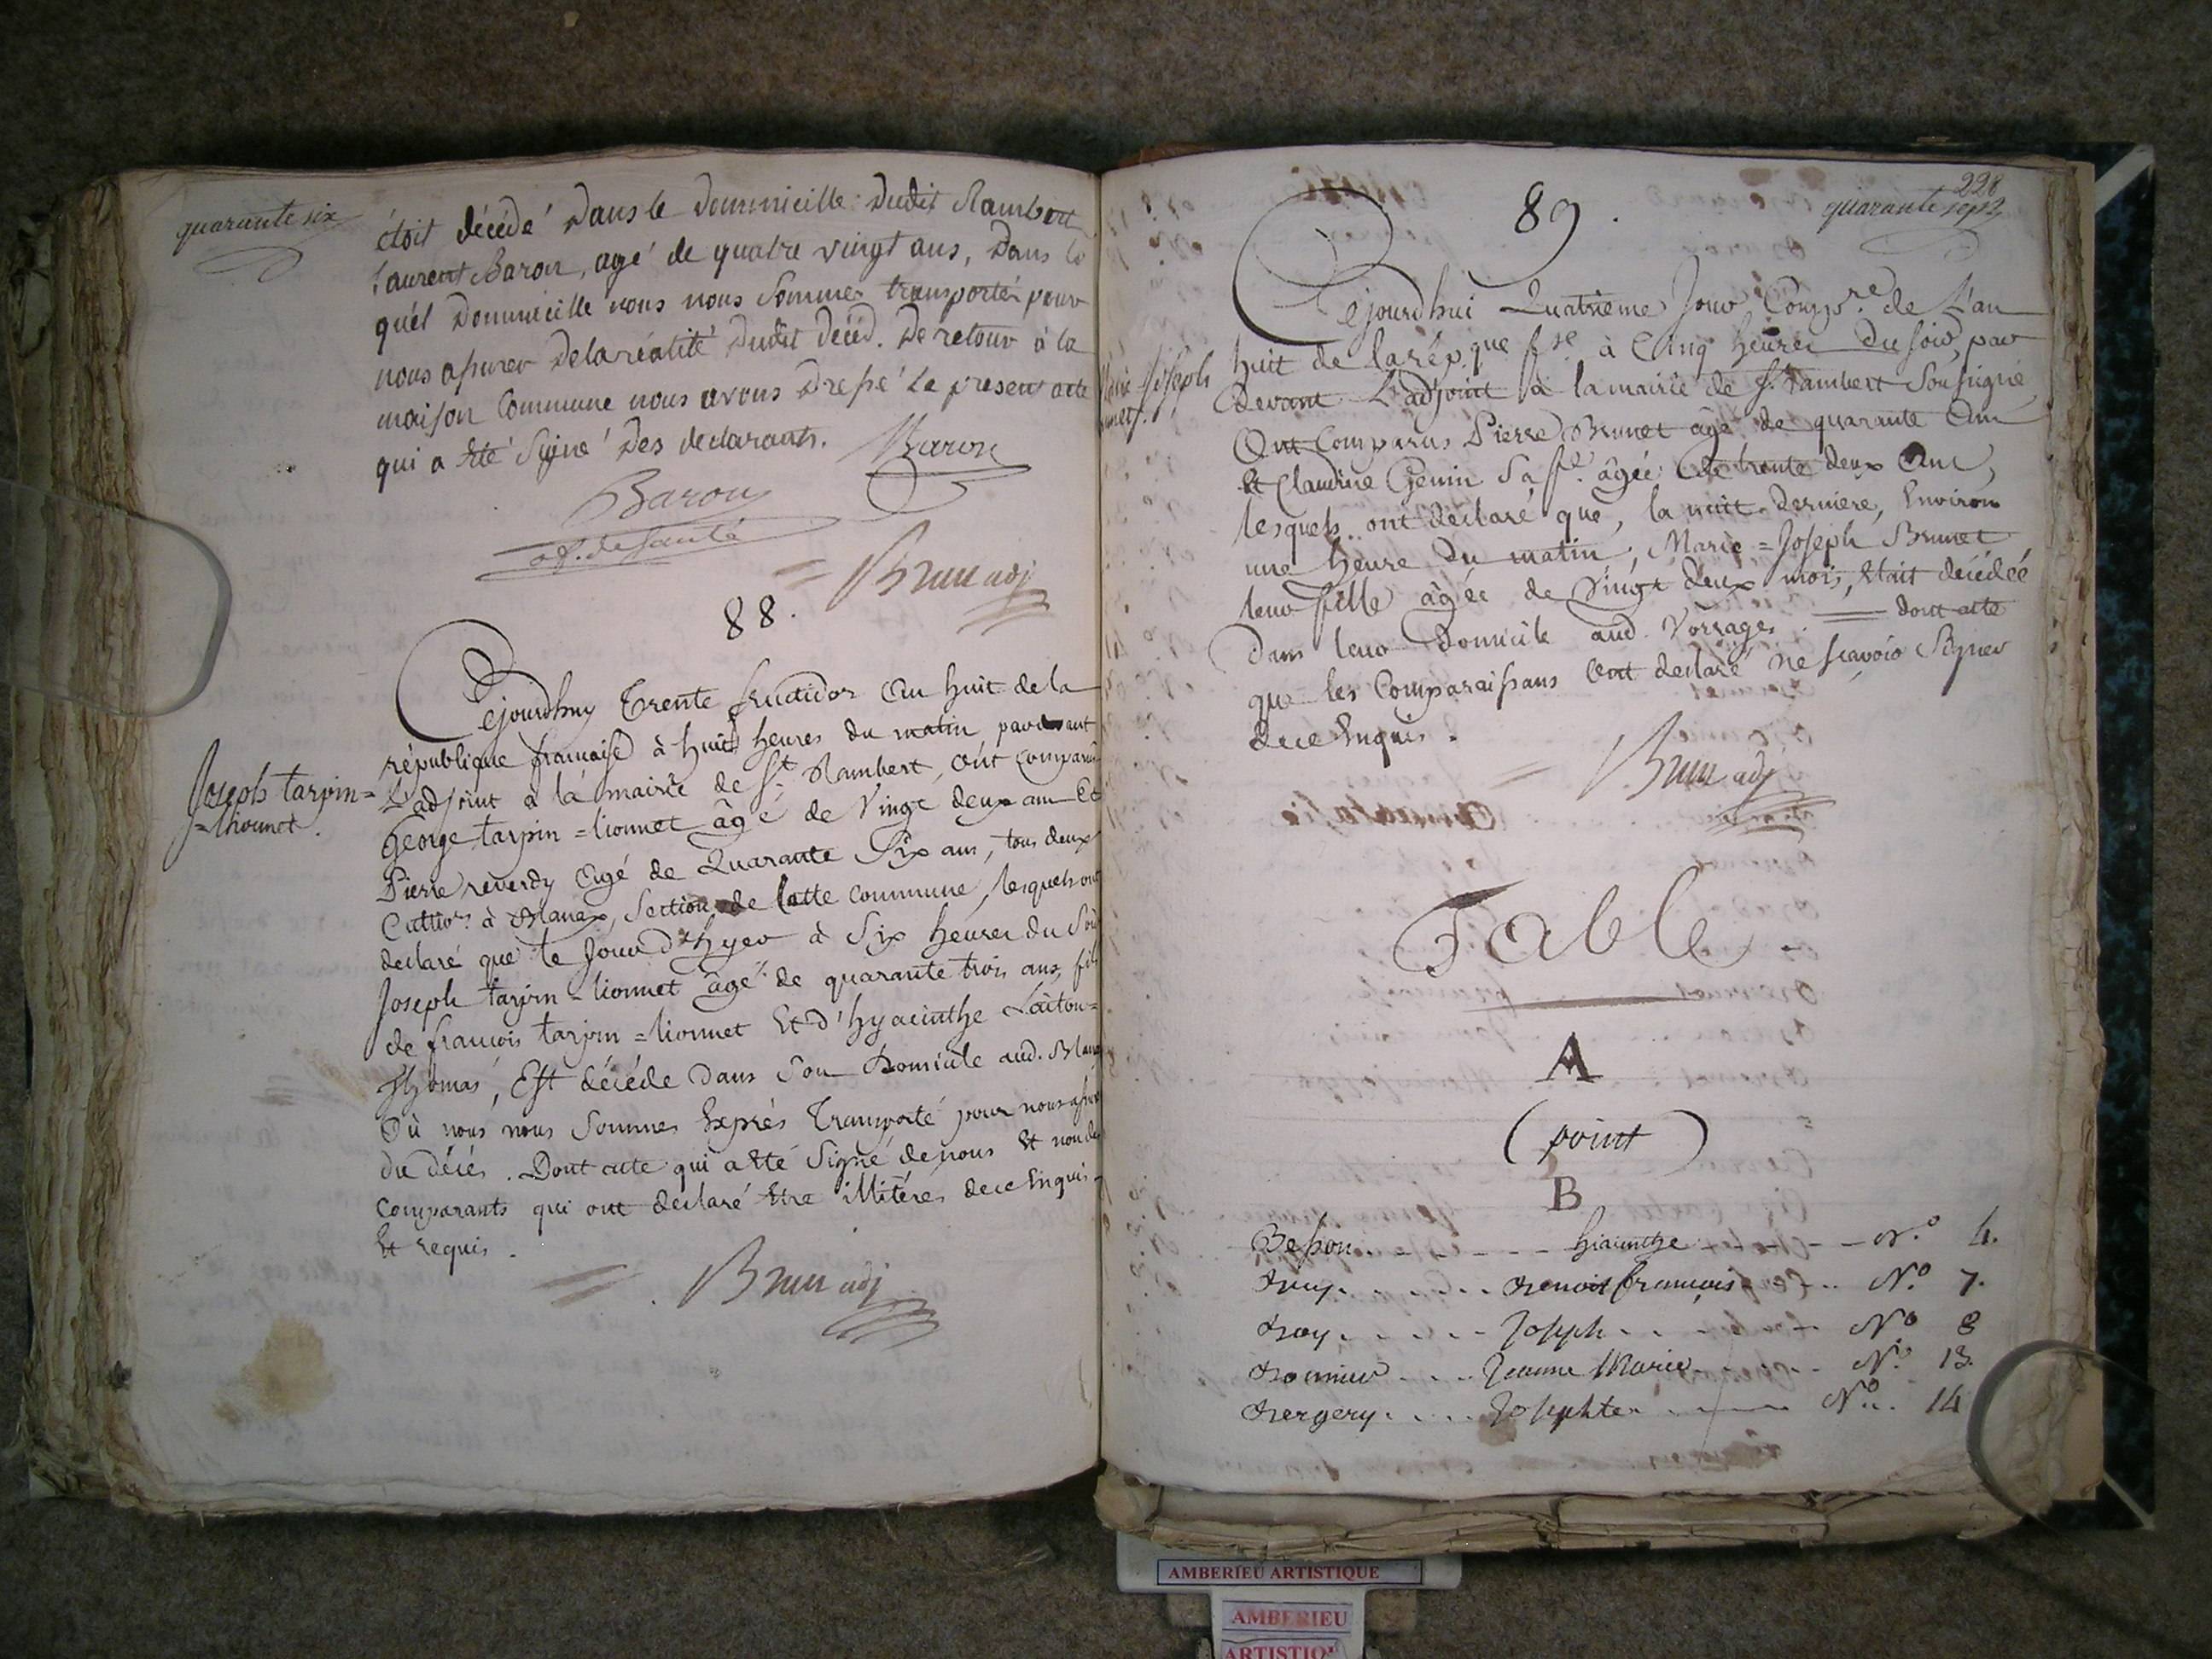 quarante six
étoit décédé dans le dommicille dudit Rambert
laurent Baron, agé de quatre vingt ans, dans le
quel dommicille nous nous sommes transportés pour
nous assurer de la réalité dudit décéd. De retour à la
maison Commune nous avons dressé le present acte
qui a été signé des declarants. Baron
Baron
of. de santé
= Brun adj
88.
Cejourdhuy trente fructidor an huit de la
république francaise à huit heures du matin pardevant
L'adjoint à la mairie de St Rambert, ont comparus
George tarpin=lionnet âgé de vingt deux ans Et
Pierre reverdy agé de Quarante Six ans, tous deux
Cultiv.rs à Blanex, Section de cette commune, lesquels ont
declaré que le jour d'hyer à Six heures du Soir
Joseph tarpin=lionnet âgé de quarante trois ans, fils
de francois tarpin=lionnet Et d'hyacinthe Laiton=
thomas, Est décéde dans Son Domicile aud. Blanex
Où nous nous Sommes Exprés transporté pour nous assurer
du décés. Dont acte qui a été Signé de nous et non des
comparants qui ont declaré être illitérés de ce Enquis
Et requis.
= . Brun adj
Joseph tarpin=
=lionnet.
228
quarante sept
89.
Cejourdhui Quatrieme Jour Comp.re de L'an
huit de la rép.que f.se à Cinq heures du soir, par
devant L'adjoint à la mairie de St Rambert Soussigné
Ont Comparus Pierre Brunet âgé de quarante ans
Et Claudine Genin Sa f.e âgée de trente deux ans,
lesquels ont declaré que, la nuit derniere, Environ
une heure du matin, Marie=Joseph Brunet
leur fille âgée de vingt deux mois, était décédée
dans leur Domicile aud. Vorrages. = dont acte
que les Comparaissans ont declaré ne scavoir Signer
de ce Enquis.
= Brun adj
Marie Joseph
Brunet.
Table
A
(point)
B
Besson - - - - - hiacinthe - - N.o 4.
Buy. . . . . . Benoit francois . . N.o 7.
Boy. . . . . - Joseph . . . . N.o 8
Bonnier . . . . Jeanne Marie . . . N.o 13.
Bergery. . . . . Josephte. . . . . N.o 14
AMBERIEU ARTISTIQUE
AMBERIEU
ARTISTIQU